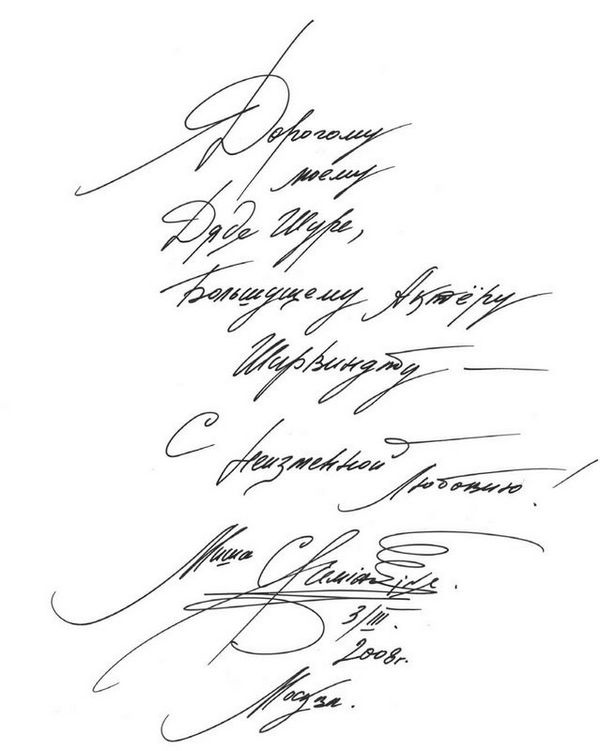 Дорогому
моему
Дяде Шуре,
Большущему Актёру
Ширвиндту —
С неизменной Любовию!
Миша Chemiakine.
3/III.
2008г.
Москва.